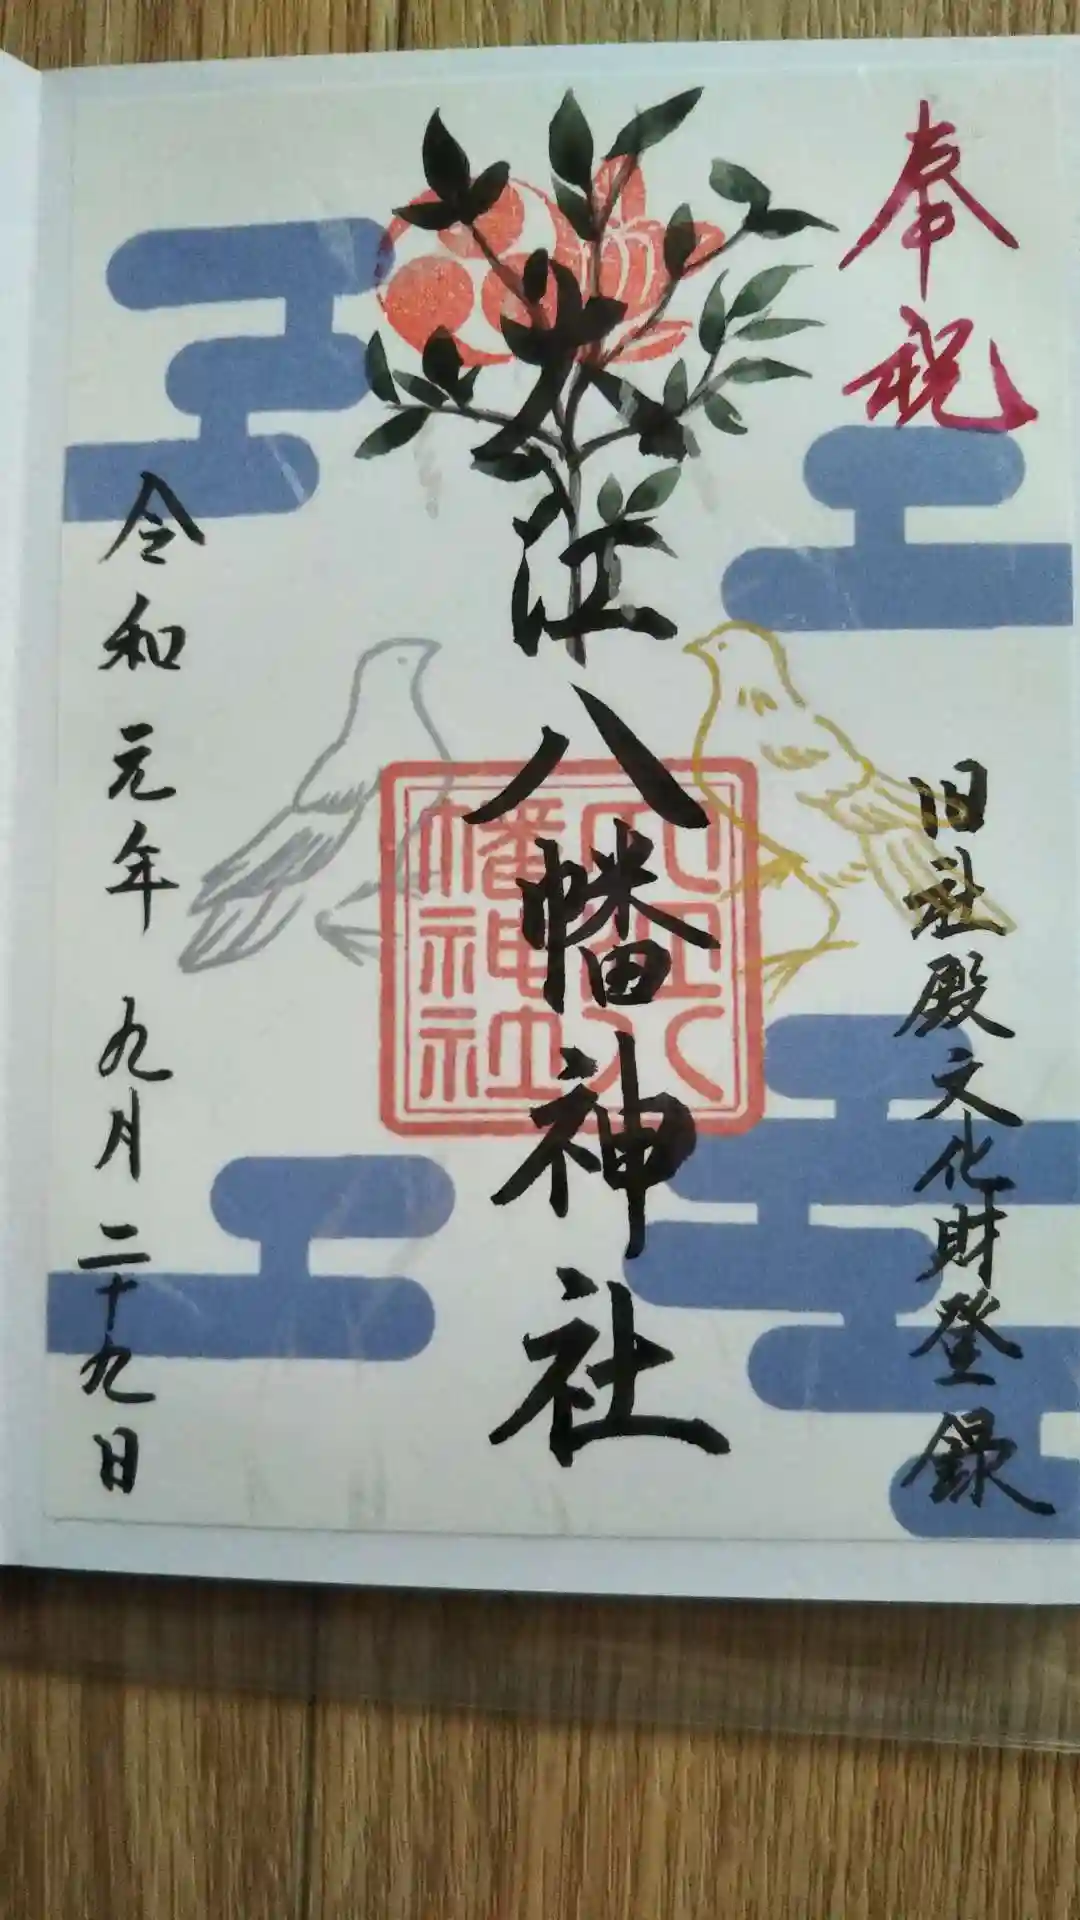 奉祝
旧社殿文化財登録
大江八幡神社
大江八
幡神社
令和元年九月二十九日